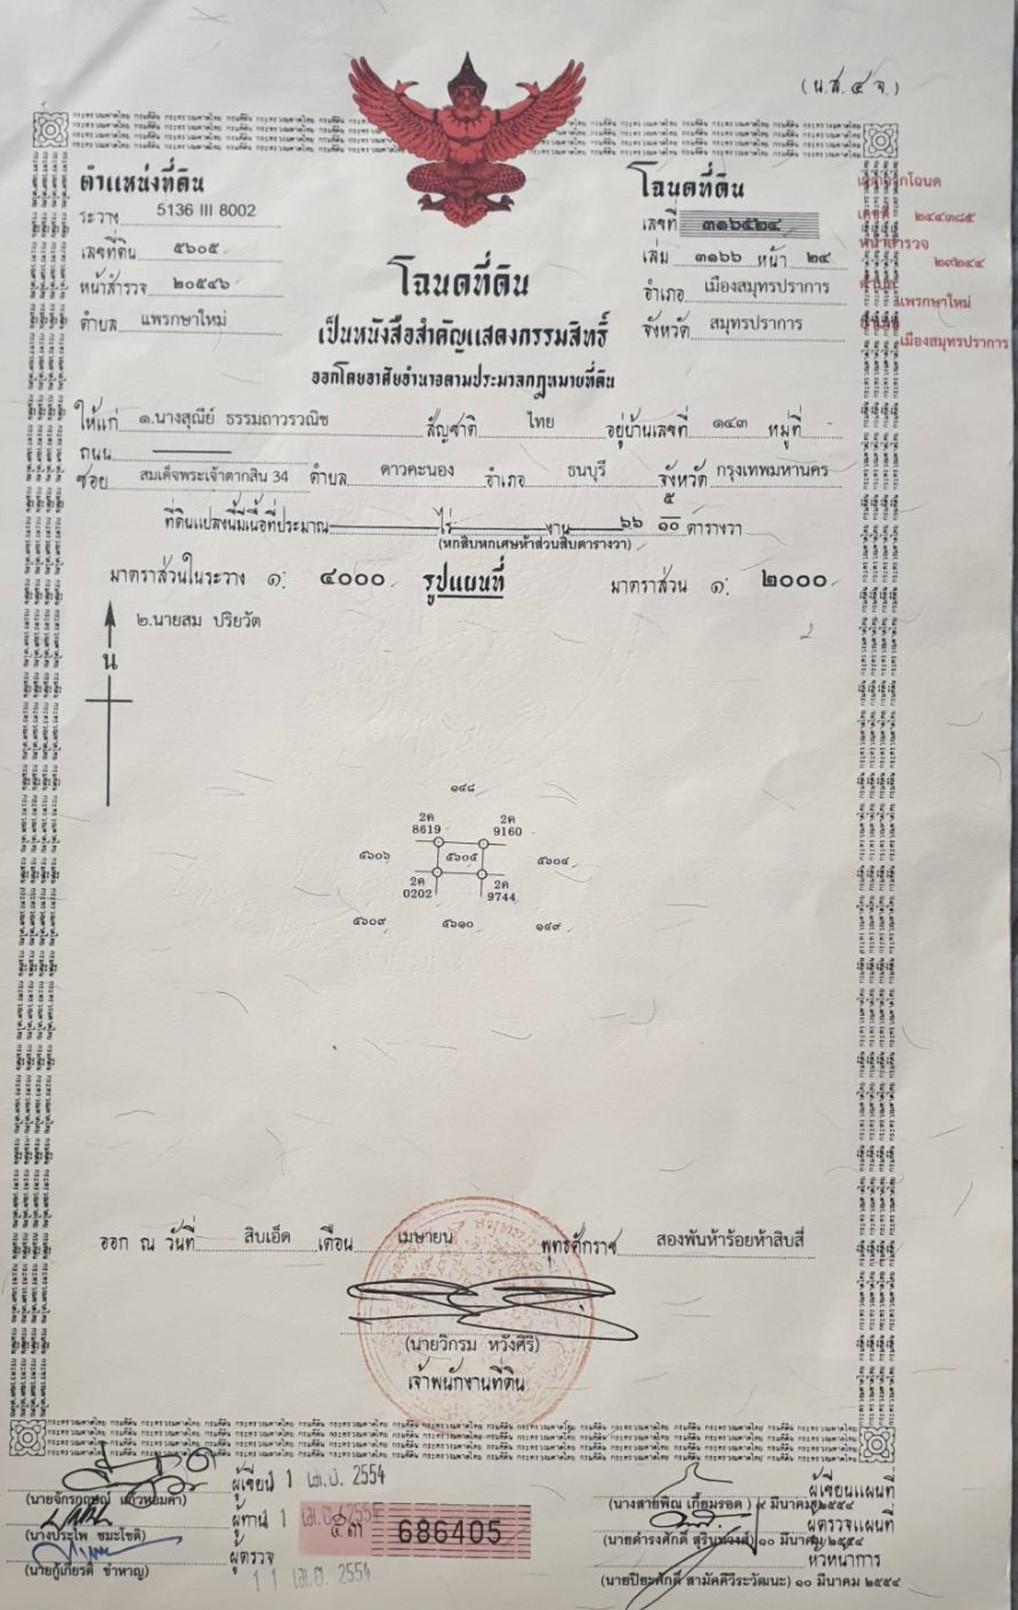 (น.ส.๔ จ.)
ตำแหน่งที่ดิน
ระวาง 5136 III 8002
เลขที่ดิน ๕๖๐๕
หน้าสำรวจ ๒๐๕๔๖
ตำบล แพรกษาใหม่
โฉนดที่ดิน
เลขที่ ๓๑๖๕๒๔
เล่ม ๓๑๖๖ หน้า ๒๔
อำเภอ เมืองสมุทรปราการ
จังหวัด สมุทรปราการ
เลขที่ ๒๔๔๓๘๕
หน้าสำรวจ
๒๙๒๔๔
แพรกษาใหม่
เมืองสมุทรปราการ
โฉนดที่ดิน
เป็นหนังสือสำคัญแสดงกรรมสิทธิ์
ออกโดยอาศัยอำนาจตามประมวลกฎหมายที่ดิน
ให้แก่ ๑.นางสุณีย์ ธรรมถาวรวณิช สัญชาติ ไทย อยู่บ้านเลขที่ ๑๔๓ หมู่ที่
ถนน
ซอย สมเด็จพระเจ้าตากสิน 34 ตำบล ดาวคะนอง อำเภอ ธนบุรี จังหวัด กรุงเทพมหานคร
ที่ดินแปลงนี้มีเนื้อที่ประมาณ ไร่ งาน ๖๖ ๕/๑๐ ตารางวา
(หกสิบหกเศษห้าส่วนสิบตารางวา)
มาตราส่วนในระวาง ๑: ๔๐๐๐ รูปแผนที่ มาตราส่วน ๑: ๒๐๐๐
๒.นายสม ปริยวัต
น
๑๔๘
2ค 2ค
8619 9160
๕๖๐๖ ๕๖๐๕ ๕๖๐๔
2ค 2ค
0202 9744
๕๖๐๙ ๕๖๑๐ ๑๔๙
ออก ณ วันที่ สิบเอ็ด เดือน เมษายน พุทธศักราช สองพันห้าร้อยห้าสิบสี่
(นายวิกรม หวังศิริ)
เจ้าพนักงานที่ดิน
ผู้เขียน 1 เม.ย. 2554
(นายจักรกฤษณ์ แก้วหอมคำ)
ผู้ทาน 1
(นางประไพ ชมะโชติ)
ผู้ตรวจ
(นายกู้เกียรติ ชำหาญ)
11 เม.ย. 2554
686405
ผู้เขียนแผนที่
(นางสายพิณ เกี้ยมรอด) ๙ มีนาคม ๒๕๕๔
ผู้ตรวจแผนที่
(นายดำรงศักดิ์ สุรินทวงส์) ๑๐ มีนาคม ๒๕๕๔
หัวหน้าการ
(นายปิยะศักดิ์ สามัคคีวีระวัฒนะ) ๑๐ มีนาคม ๒๕๕๔